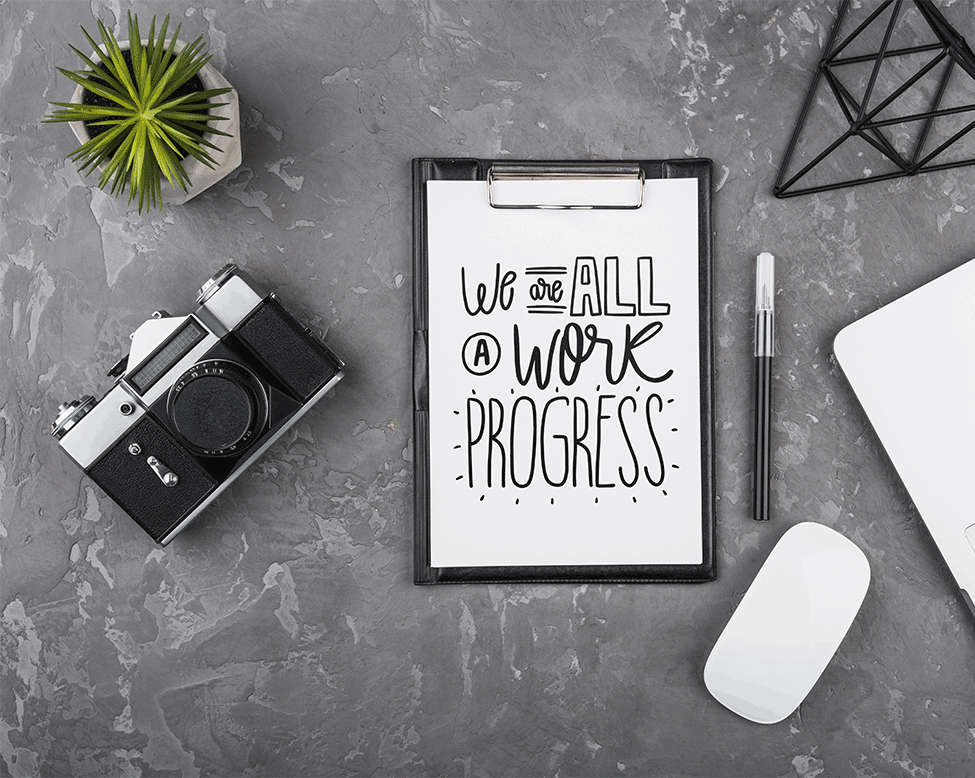 We are ALL
A WORK
PROGRESS